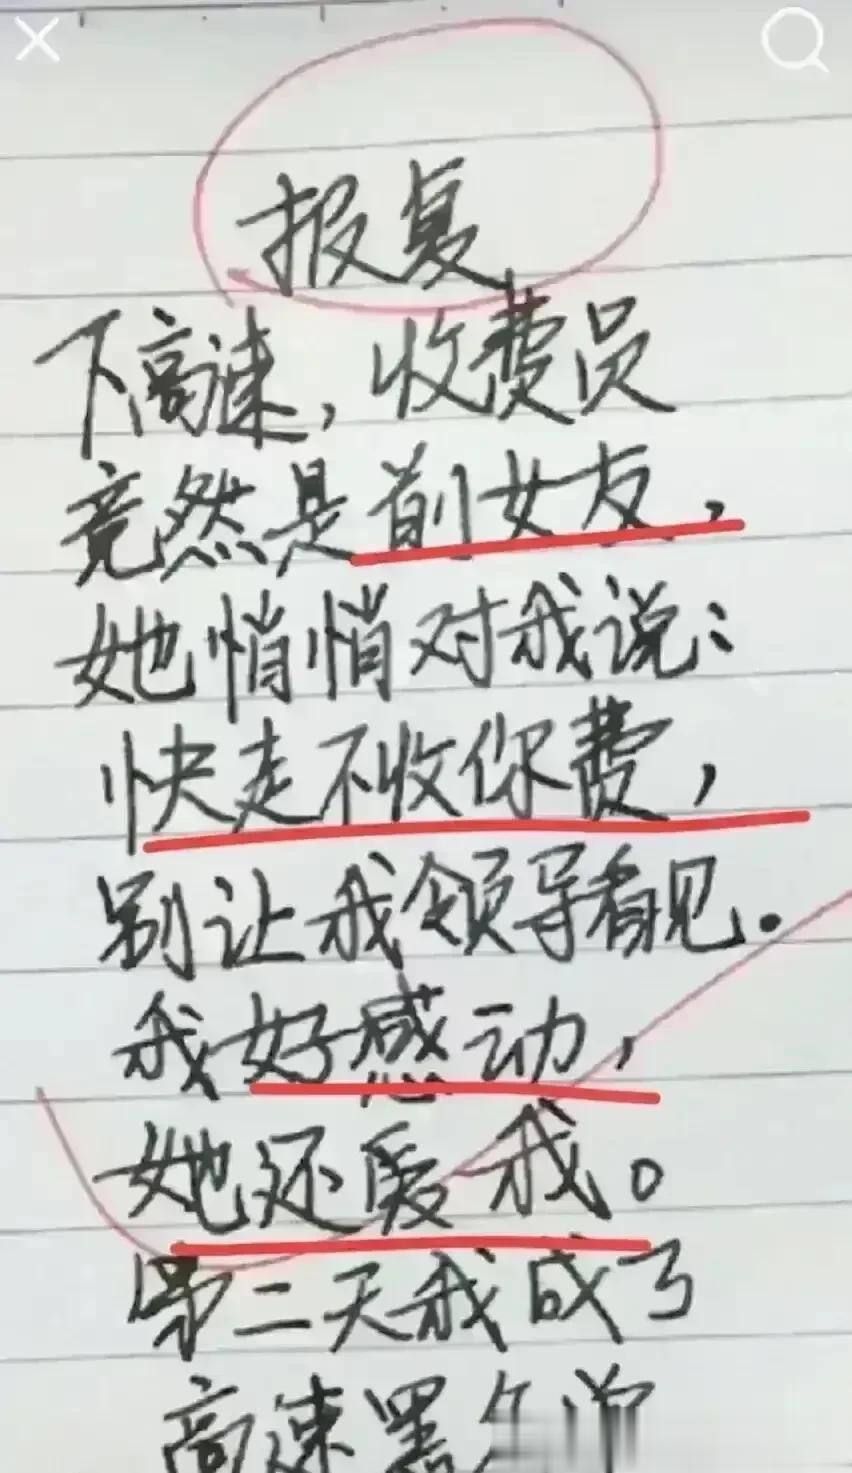 报复
下高速，收费员
竟然是前女友，
她悄悄对我说：
快走不收你费，
别让我领导看见。
我好感动，
她还爱我。
第二天我成了
高速黑名单